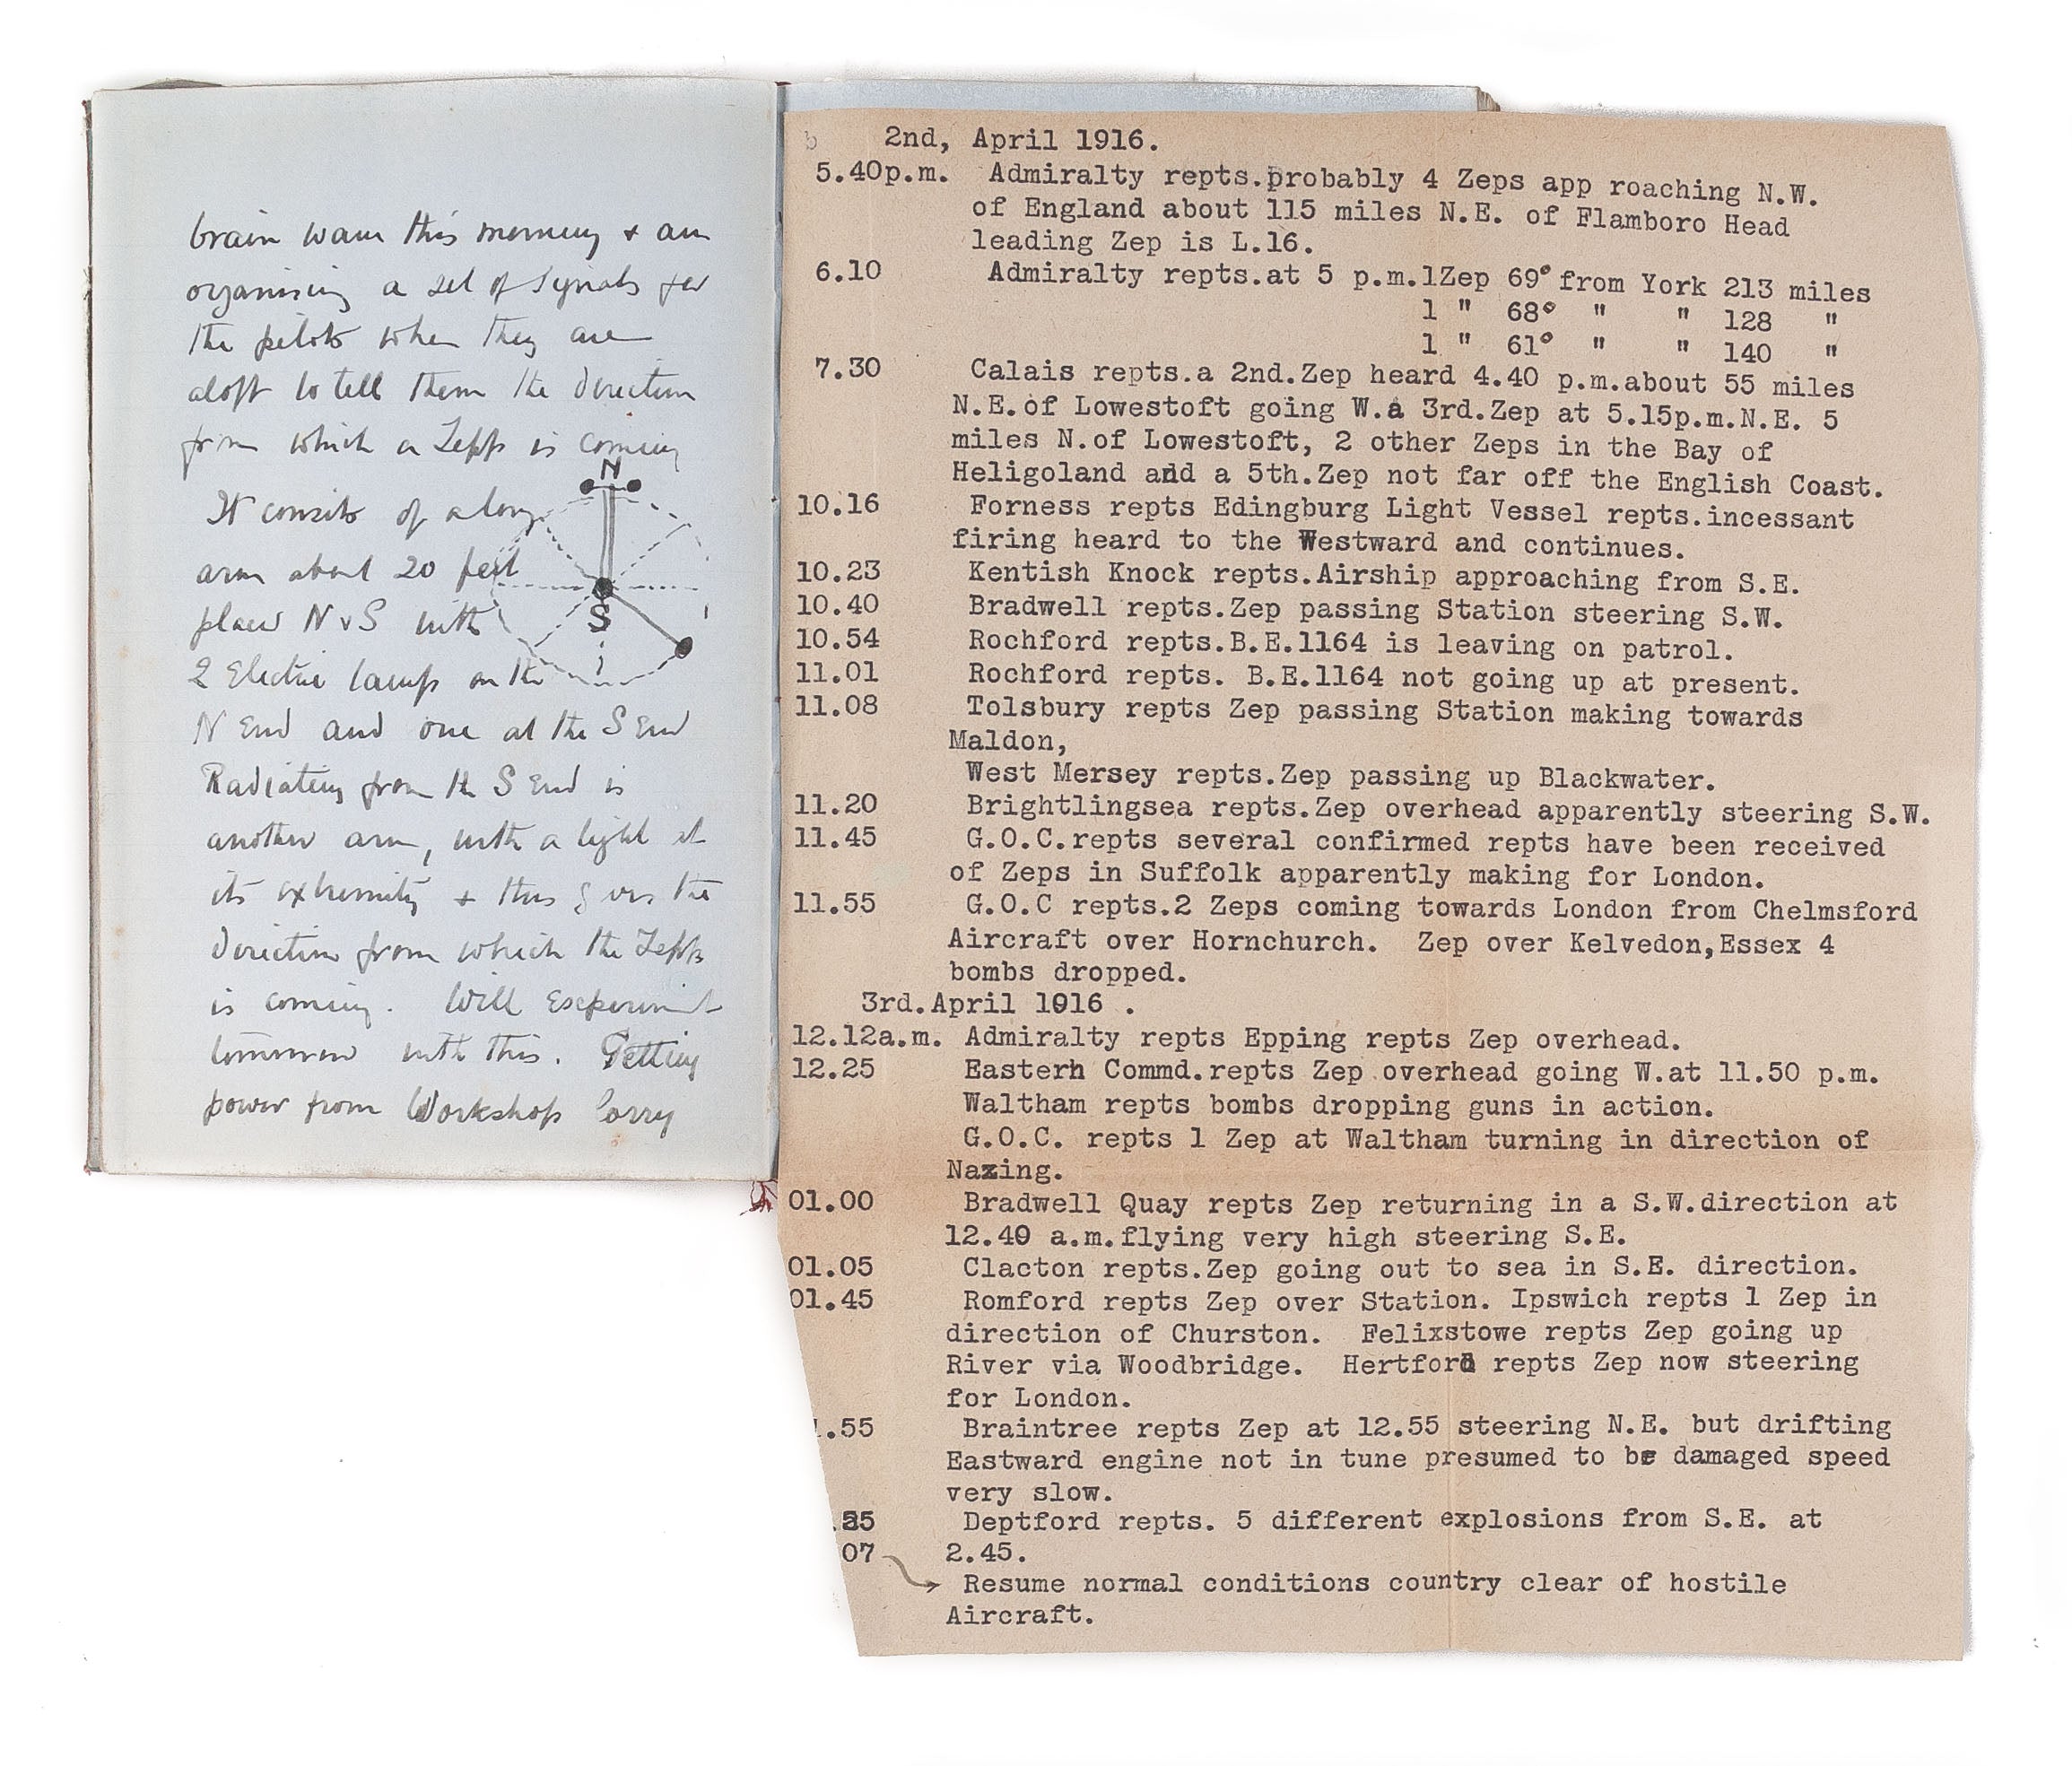 brain wave this morning + am
organising a set of signals for
the pilots when they are
aloft to tell them the direction
from which a Zepp is coming
N
It consists of a long
arm about 20 feet
placed N & S with
S
2 Electric lamps on the
N End and one at the S End
Radiating from the S End is
another arm, with a light at
its extremity + this gives the
direction from which the Zepp
is coming. Will Experiment
tomorrow with this. Getting
power from Workshop lorry
2nd, April 1916.
5.40p.m. Admiralty repts.probably 4 Zeps app roaching N.W.
of England about 115 miles N.E. of Flamboro Head
leading Zep is L.16.
6.10 Admiralty repts.at 5 p.m.1Zep 69° from York 213 miles
1 " 68° " " 128 "
1 " 61° " " 140 "
7.30 Calais repts.a 2nd.Zep heard 4.40 p.m.about 55 miles
N.E.of Lowestoft going W.a 3rd.Zep at 5.15p.m.N.E. 5
miles N.of Lowestoft, 2 other Zeps in the Bay of
Heligoland add a 5th.Zep not far off the English Coast.
10.16 Forness repts Edingburg Light Vessel repts.incessant
firing heard to the Westward and continues.
10.23 Kentish Knock repts.Airship approaching from S.E.
10.40 Bradwell repts.Zep passing Station steering S.W.
10.54 Rochford repts.B.E.1164 is leaving on patrol.
11.01 Rochford repts. B.E.1164 not going up at present.
11.08 Tolsbury repts Zep passing Station making towards
Maldon,
West Mersey repts.Zep passing up Blackwater.
11.20 Brightlingsea repts.Zep overhead apparently steering S.W.
11.45 G.O.C.repts several confirmed repts have been received
of Zeps in Suffolk apparently making for London.
11.55 G.O.C repts.2 Zeps coming towards London from Chelmsford
Aircraft over Hornchurch. Zep over Kelvedon,Essex 4
bombs dropped.
3rd.April 1916 .
12.12a.m. Admiralty repts Epping repts Zep overhead.
12.25 Eastern Commd.repts Zep overhead going W.at 11.50 p.m.
Waltham repts bombs dropping guns in action.
G.O.C. repts 1 Zep at Waltham turning in direction of
Nazing.
01.00 Bradwell Quay repts Zep returning in a S.W.direction at
12.40 a.m.flying very high steering S.E.
01.05 Clacton repts.Zep going out to sea in S.E. direction.
01.45 Romford repts Zep over Station. Ipswich repts 1 Zep in
direction of Churston. Felixstowe repts Zep going up
River via Woodbridge. Hertford repts Zep now steering
for London.
.55 Braintree repts Zep at 12.55 steering N.E. but drifting
Eastward engine not in tune presumed to be damaged speed
very slow.
Deptford repts. 5 different explosions from S.E. at
07 2.45.
Resume normal conditions country clear of hostile
Aircraft.